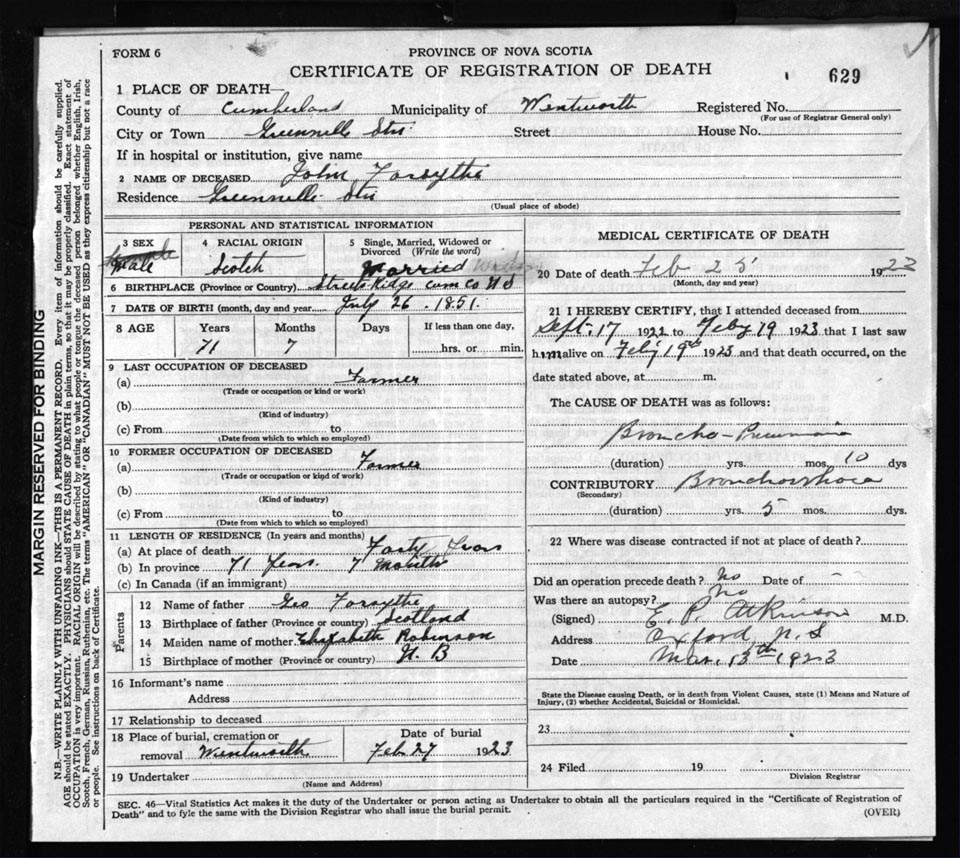 FORM 6
PROVINCE OF NOVA SCOTIA
CERTIFICATE OF REGISTRATION OF DEATH
629
1 PLACE OF DEATH—
County of Cumberland Municipality of Wentworth Registered No.
(For use of Registrar General only)
City or Town Greenville Stn Street House No.
If in hospital or institution, give name
2 NAME OF DECEASED John Forsythe
Residence Greenville Stn
(Usual place of abode)
PERSONAL AND STATISTICAL INFORMATION
3 SEX
Male
4 RACIAL ORIGIN
Scotch
5 Single, Married, Widowed or
Divorced (Write the word)
Married
6 BIRTHPLACE (Province or Country) Streets Ridge Cum Co NS
7 DATE OF BIRTH (month, day and year) July 26 1851
8 AGE Years Months Days If less than one day,
71 7 hrs. or min.
9 LAST OCCUPATION OF DECEASED
(a) Farmer
(Trade or occupation or kind or work)
(b)
(Kind of industry)
(c) From to
(Date from which to which so employed)
10 FORMER OCCUPATION OF DECEASED
(a) Farmer
(Trade or occupation or kind of work)
(b)
(Kind of industry)
(c) From to
(Date from which to which so employed)
11 LENGTH OF RESIDENCE (In years and months)
(a) At place of death Forty Years
(b) In province 71 Years 7 Months
(c) In Canada (if an immigrant)
Parents
12 Name of father Geo Forsythe
13 Birthplace of father (Province or country) Scotland
14 Maiden name of mother Elizabeth Robinson
15 Birthplace of mother (Province or country) N. B
16 Informant's name
Address
17 Relationship to deceased
18 Place of burial, cremation or Date of burial
removal Wentworth Feb 27 1923
19 Undertaker
(Name and Address)
MEDICAL CERTIFICATE OF DEATH
20 Date of death Feb 25 19
(Month, day and year)
21 I HEREBY CERTIFY, that I attended deceased from
Sept. 17 1922 to Feby 19 1923 that I last saw
him alive on Feby 19th 1923 and that death occurred, on the
date stated above, at m.
The CAUSE OF DEATH was as follows:
Broncho-Pneumonia
(duration) yrs. mos. 10 dys
CONTRIBUTORY Bronchorrhoea
(Secondary)
(duration) yrs. 5 mos. dys.
22 Where was disease contracted if not at place of death?
Did an operation precede death? No Date of —
Was there an autopsy? No
(Signed) E. P. Atkinson M.D.
Address Oxford N.S
Date Mar. 13th 1923
State the Disease causing Death, or in death from Violent Causes, state (1) Means and Nature of
Injury, (2) whether Accidental, Suicidal or Homicidal.
23
24 Filed 19
Division Registrar
SEC. 46—Vital Statistics Act makes it the duty of the Undertaker or person acting as Undertaker to obtain all the particulars required in the "Certificate of Registration of
Death" and to fyle the same with the Division Registrar who shall issue the burial permit.
(OVER)
MARGIN RESERVED FOR BINDING
N.B.—WRITE PLAINLY WITH UNFADING INK—THIS IS A PERMANENT RECORD. Every item of information should be carefully supplied.
AGE should be stated EXACTLY. PHYSICIANS should STATE CAUSE OF DEATH in plain terms, so that it may be properly classified. Exact statement of
OCCUPATION is very important. RACIAL ORIGIN will be described by stating to what people or tongue the deceased person belonged whether English, Irish,
Scotch, French, German, Russian, Ruthenian, etc. The terms "AMERICAN" or "CANADIAN" MUST NOT BE USED as they express citizenship but not a race
or people. See instructions on back of Certificate.